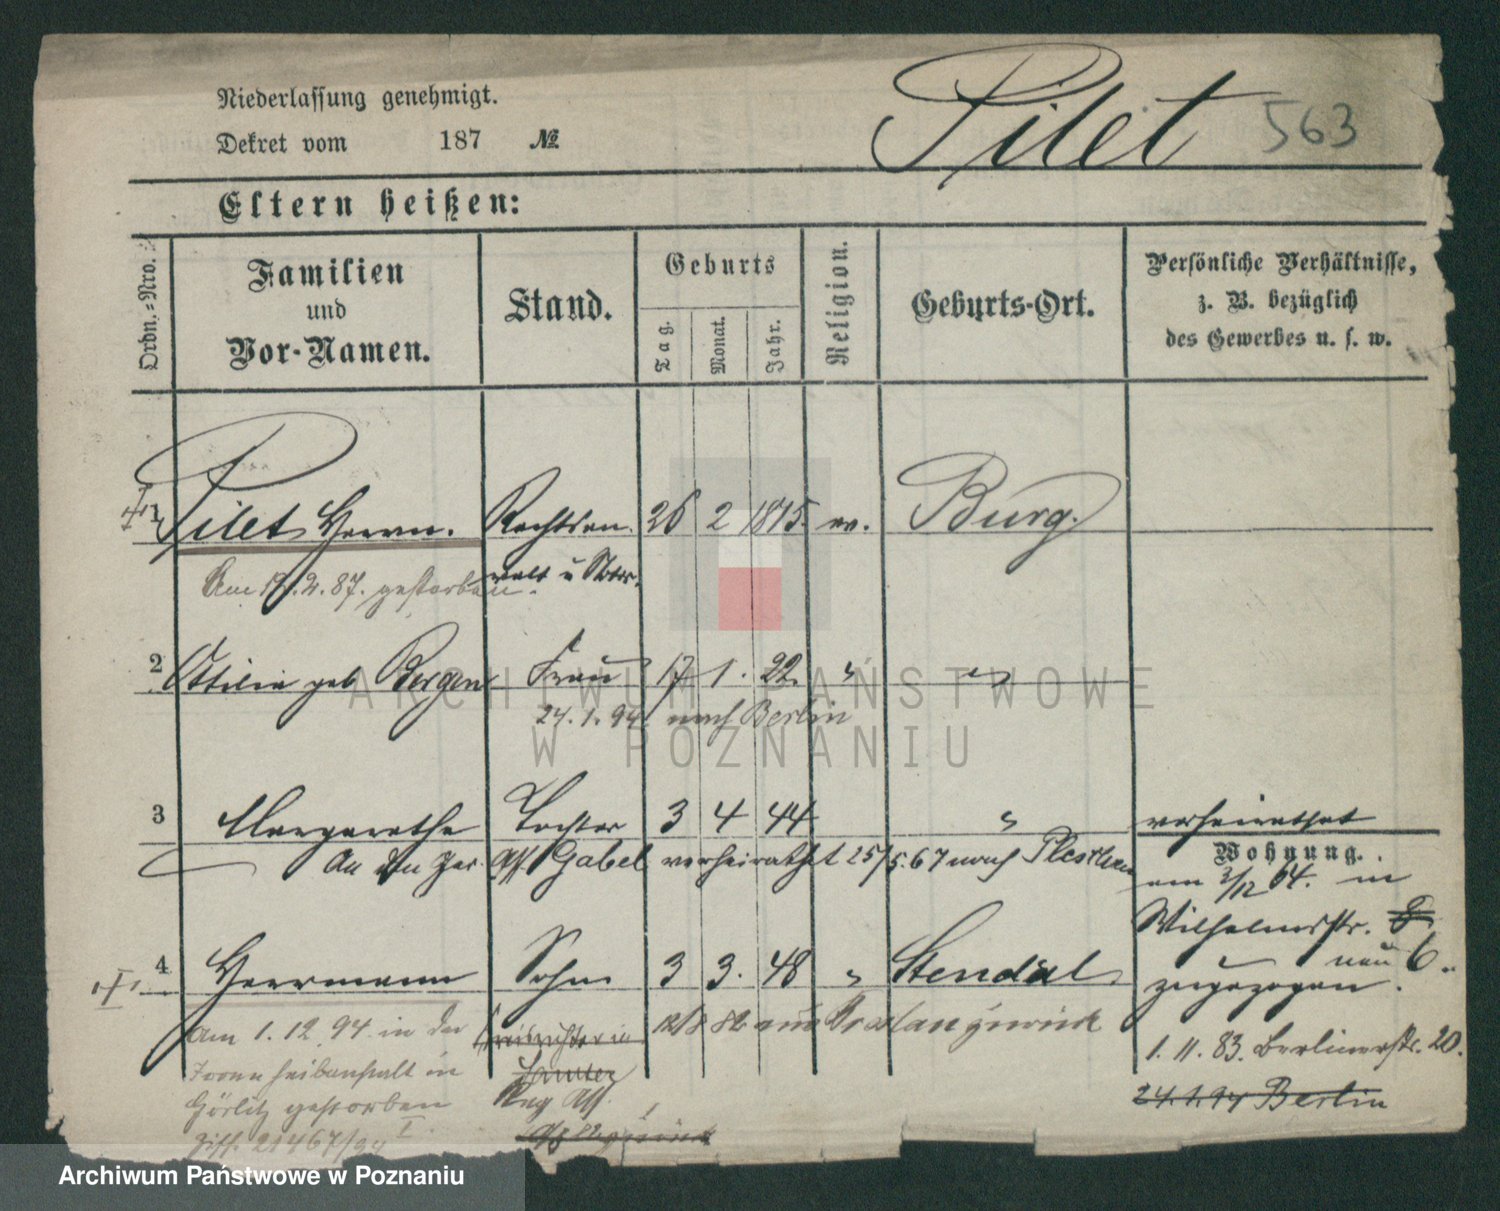 Niederlassung genehmigt.
Dekret vom 187 №
Pilet 563
Eltern heißen:
Ordn.-Nro.
Familien und Vor-Namen.
Stand.
Geburts
Tag.
Monat.
Jahr.
Religion.
Geburts-Ort.
Persönliche Verhältnisse,
z. B. bezüglich
des Gewerbes u. s. w.
1 Pilet Herrm. Rechtsan 26 2 1815. ev. Burg.
Am 19.2.87. gestorben. walt u Notar.
2 Ottilie geb Bergen Frau 17 1. 22. " "
24.1.94. nach Berlin
3 Margarethe Tochter 3 4 44 " verheirathet
An den Ger. Ass. Gabel verheirathet 25/5.67 nach Pleschen
Wohnung.
am 3/12 64. in
Wilhelmsstr. 8
neu 6.
zugezogen.
4 Herrmann Sohn 3 3. 48 " Stendal
Am 1.12.94. in der
Irrenheilanstalt in
Görlitz gestorben
Ziff. 21467/94 I.
Kreisrichter in
Samter
Reg Ass.
12/8 82 aus Breslau zurück
1. 11. 83. Berlinerstr. 20.
24.1.94 Berlin
ARCHIWUM PAŃSTWOWE
W POZNANIU
Archiwum Państwowe w Poznaniu